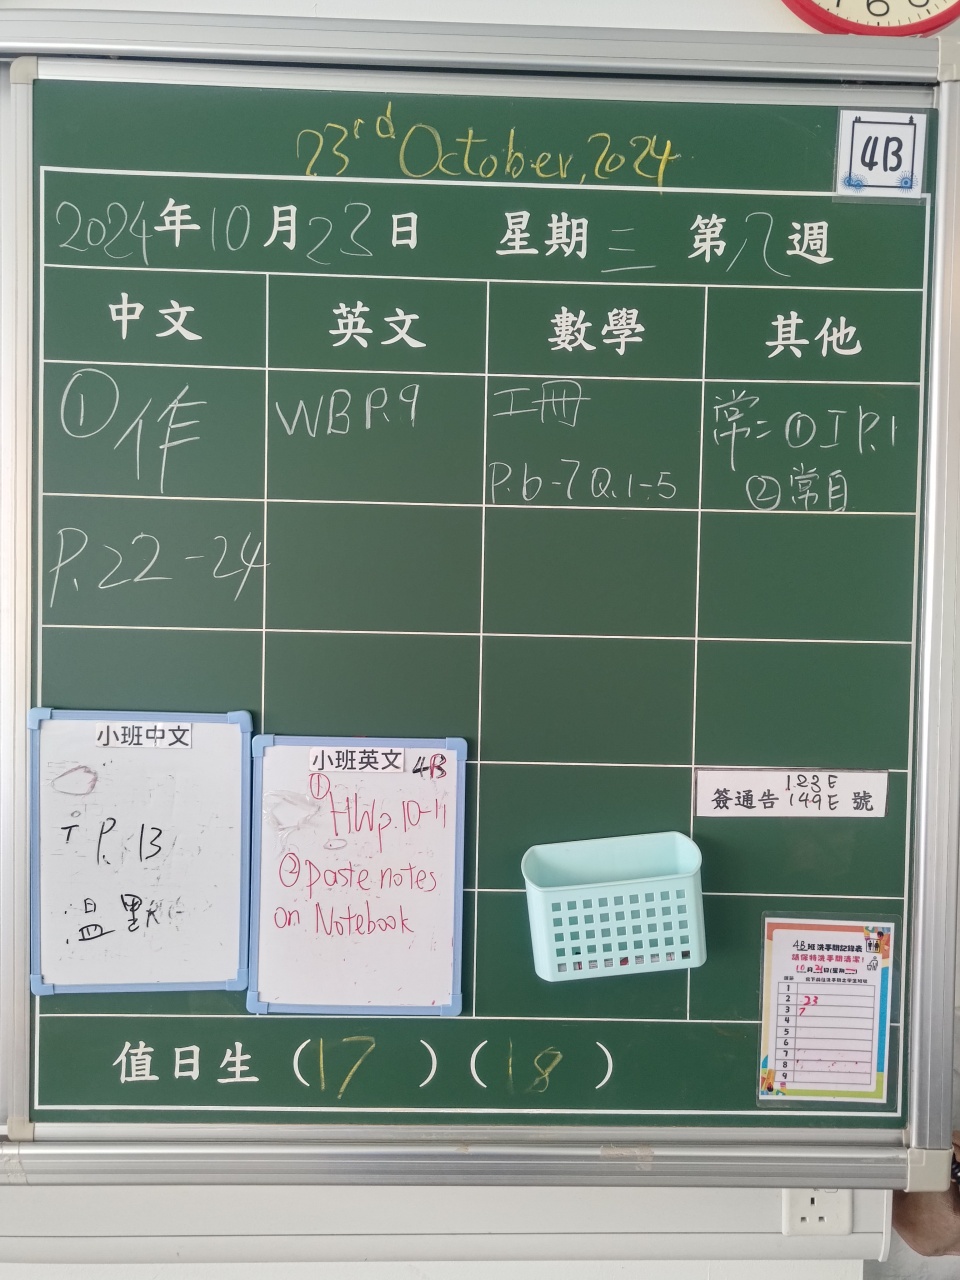 23rd October, 2024
4B
2024年10月23日 星期三 第八週
中文 英文 數學 其他
① 作
P.22-24
WB P.9
工冊
P.6-7 Q.1-5
常= ① 工 P.1
② 常自
小班中文
P.13
小班英文 4B
① HW p.10-11
② Paste notes
on Notebook
123E
簽通告 149E 號
4B班洗手間記錄表
請保持洗手間清潔!
1
2 23
3 7
4
5
6
7
8
9
值日生(17)(18)